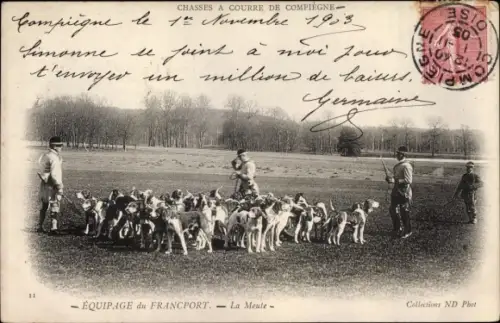 CHASSES A COURRE DE COMPIÈGNE
Compiègne le 1er Novembre 1903
Simonne se joint à moi pour
t'envoyer un million de baisers
Germaine
COMPIEGNE
OISE
11 - ÉQUIPAGE du FRANCPORT. - La Meute -
Collections ND Phot